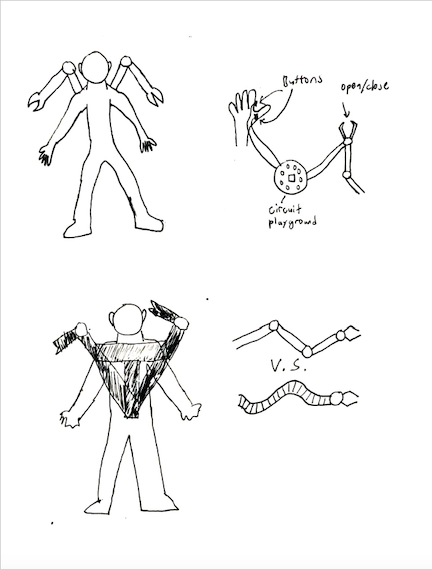 Buttons
open/close
circuit
playground
V.S.